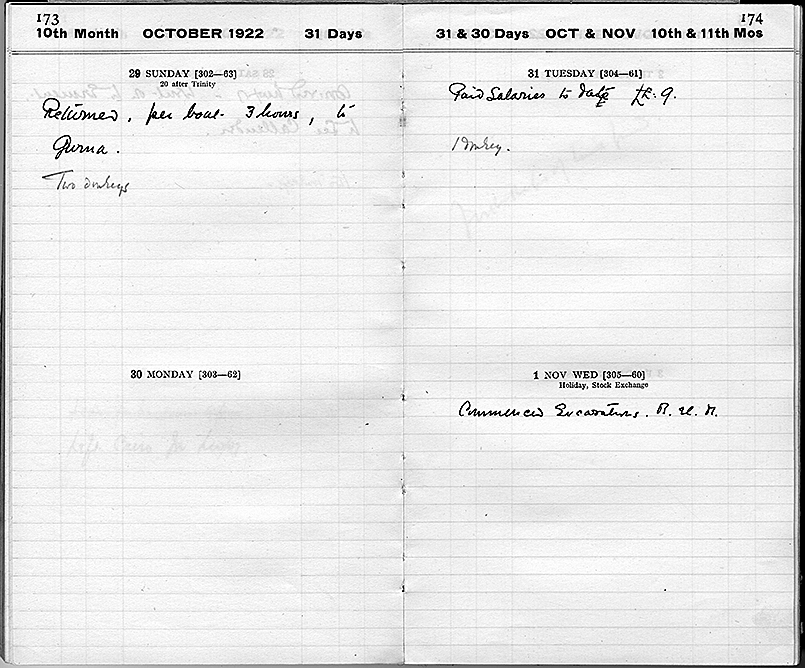 173
10th Month OCTOBER 1922 31 Days
29 SUNDAY [302—63]
20 after Trinity
Returned, per boat 3 hours, to
Gurna.
Two donkeys
30 MONDAY [303—62]
174
31 & 30 Days OCT & NOV 10th & 11th Mos
31 TUESDAY [304—61]
Paid Salaries to date £E. 9.
1 donkey.
1 NOV WED [305—60]
Holiday, Stock Exchange
Commenced Excavations.